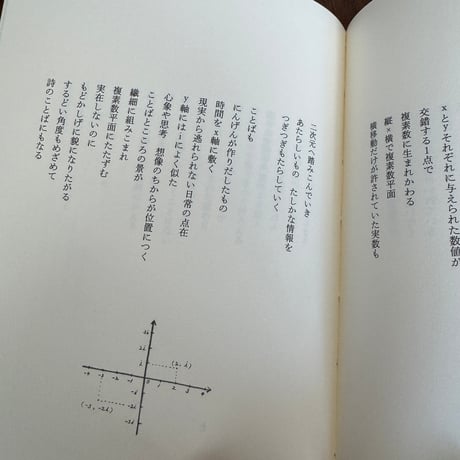 xとyそれぞれに与えられた数値が
交錯する1点で
複素数に生まれかわる
縦×横で複素数平面
横移動だけが許されていた実数も
二次元へ踏みこんでいき
あたらしいもの　たしかな情報を
つぎつぎもたらしていく
ことばも
にんげんが作りだしたもの
時間をx軸に敷く
現実から逃れられない日常の点在
y軸にはiによく似た
心象や思考　想像のちからが位置につく
ことばとこころの景が
繊細に組みこまれ
複素数平面にたたずむ
実在しないのに
もどかしげに貌になりたがる
するどい角度もめざめて
詩のことばにもなる
3i
2i
i
(2, i)
-3 -2 -1 0 1 2 3
-i
(-3, -2i)
-2i
-3i